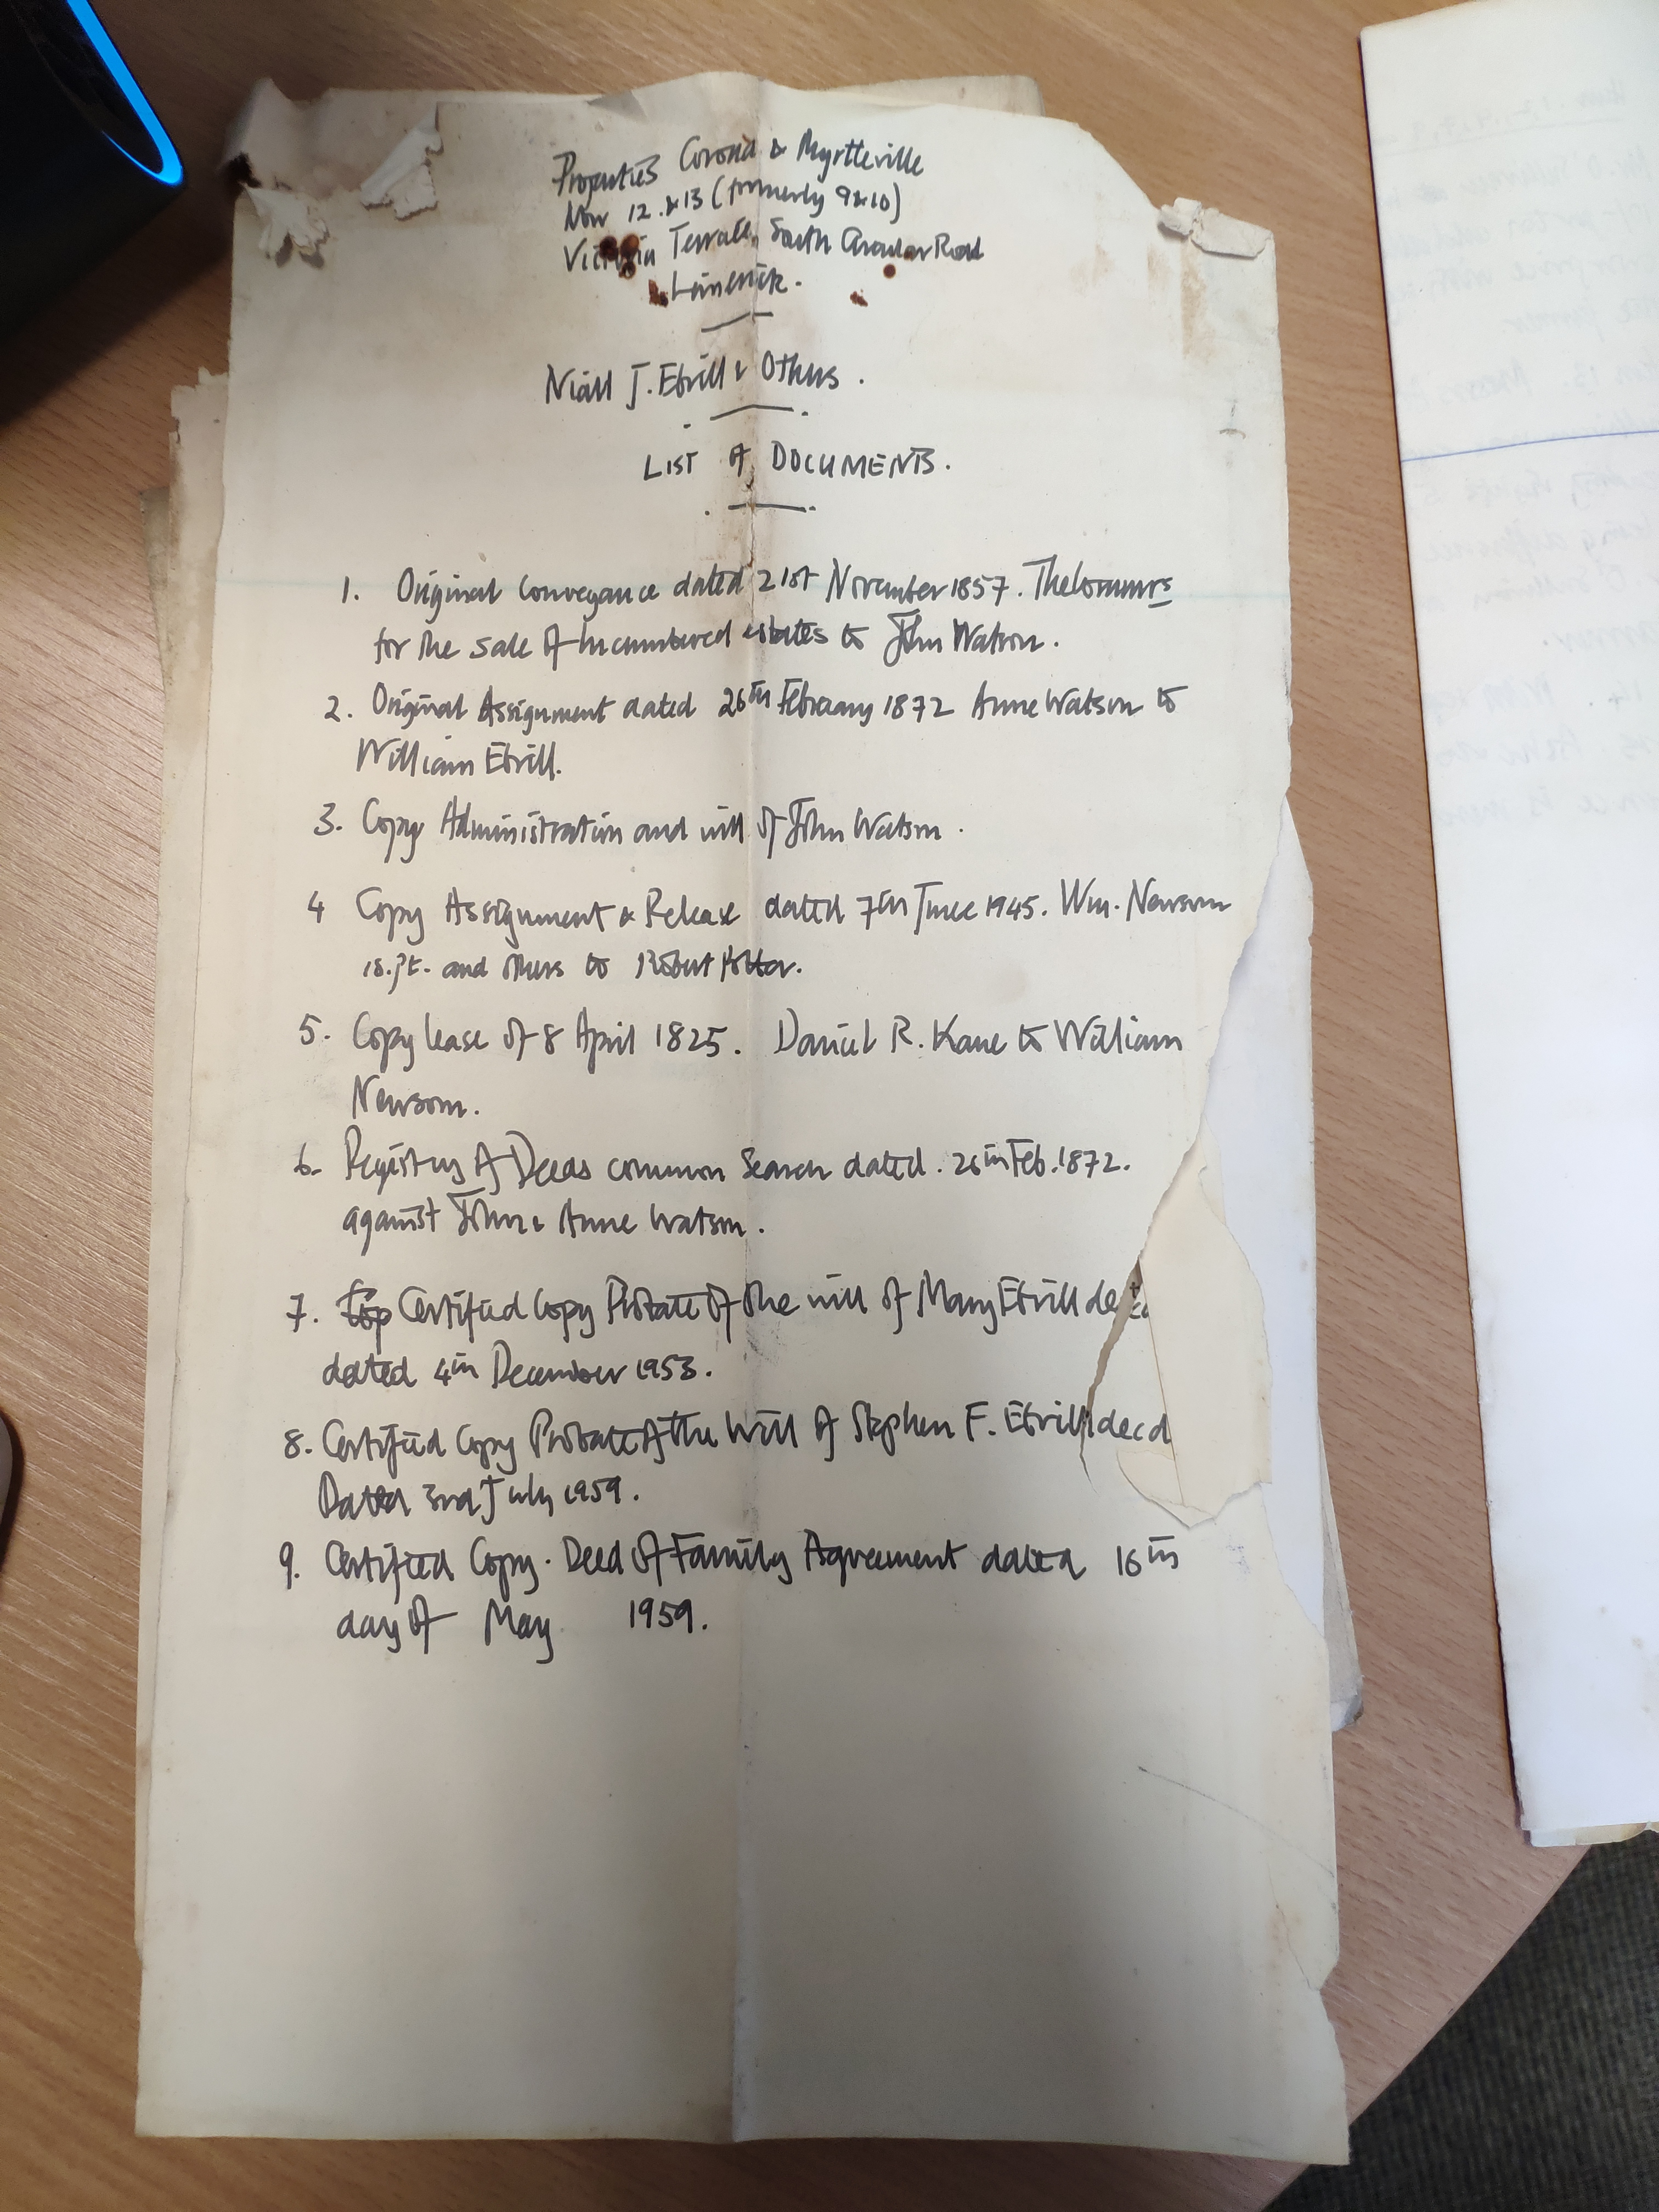 Properties Corona & Myrtteville
Now 12 & 13 (formerly 9 & 10)
Victoria Terrace, South Circular Road
Limerick.
Niall J. Ebrill & Others.
LIST of DOCUMENTS.
1. Original Conveyance dated 21st November 1857. The Commrs
for the sale of Incumbered estates to John Watson.
2. Original Assignment dated 26th February 1872 Anne Watson to
William Ebrill.
3. Copy Administration and will of John Watson.
4 Copy Assignment & Release dated 7th June 1945. Wm. Newsom
1s. pt. and others to Robert Potter.
5. Copy lease of 8 April 1825. Daniel R. Kane to William
Newsom.
6. Registry of Deeds common Search dated. 26th Feb. 1872.
against John & Anne Watson.
7. Certified Copy Probate of the will of Mary Ebrill decd
dated 4th December 1953.
8. Certified Copy Probate of the Will of Stephen F. Ebrill decd
Dated 3rd July 1959.
9. Certified Copy. Deed of Family Agreement dated 16th
day of May 1959.